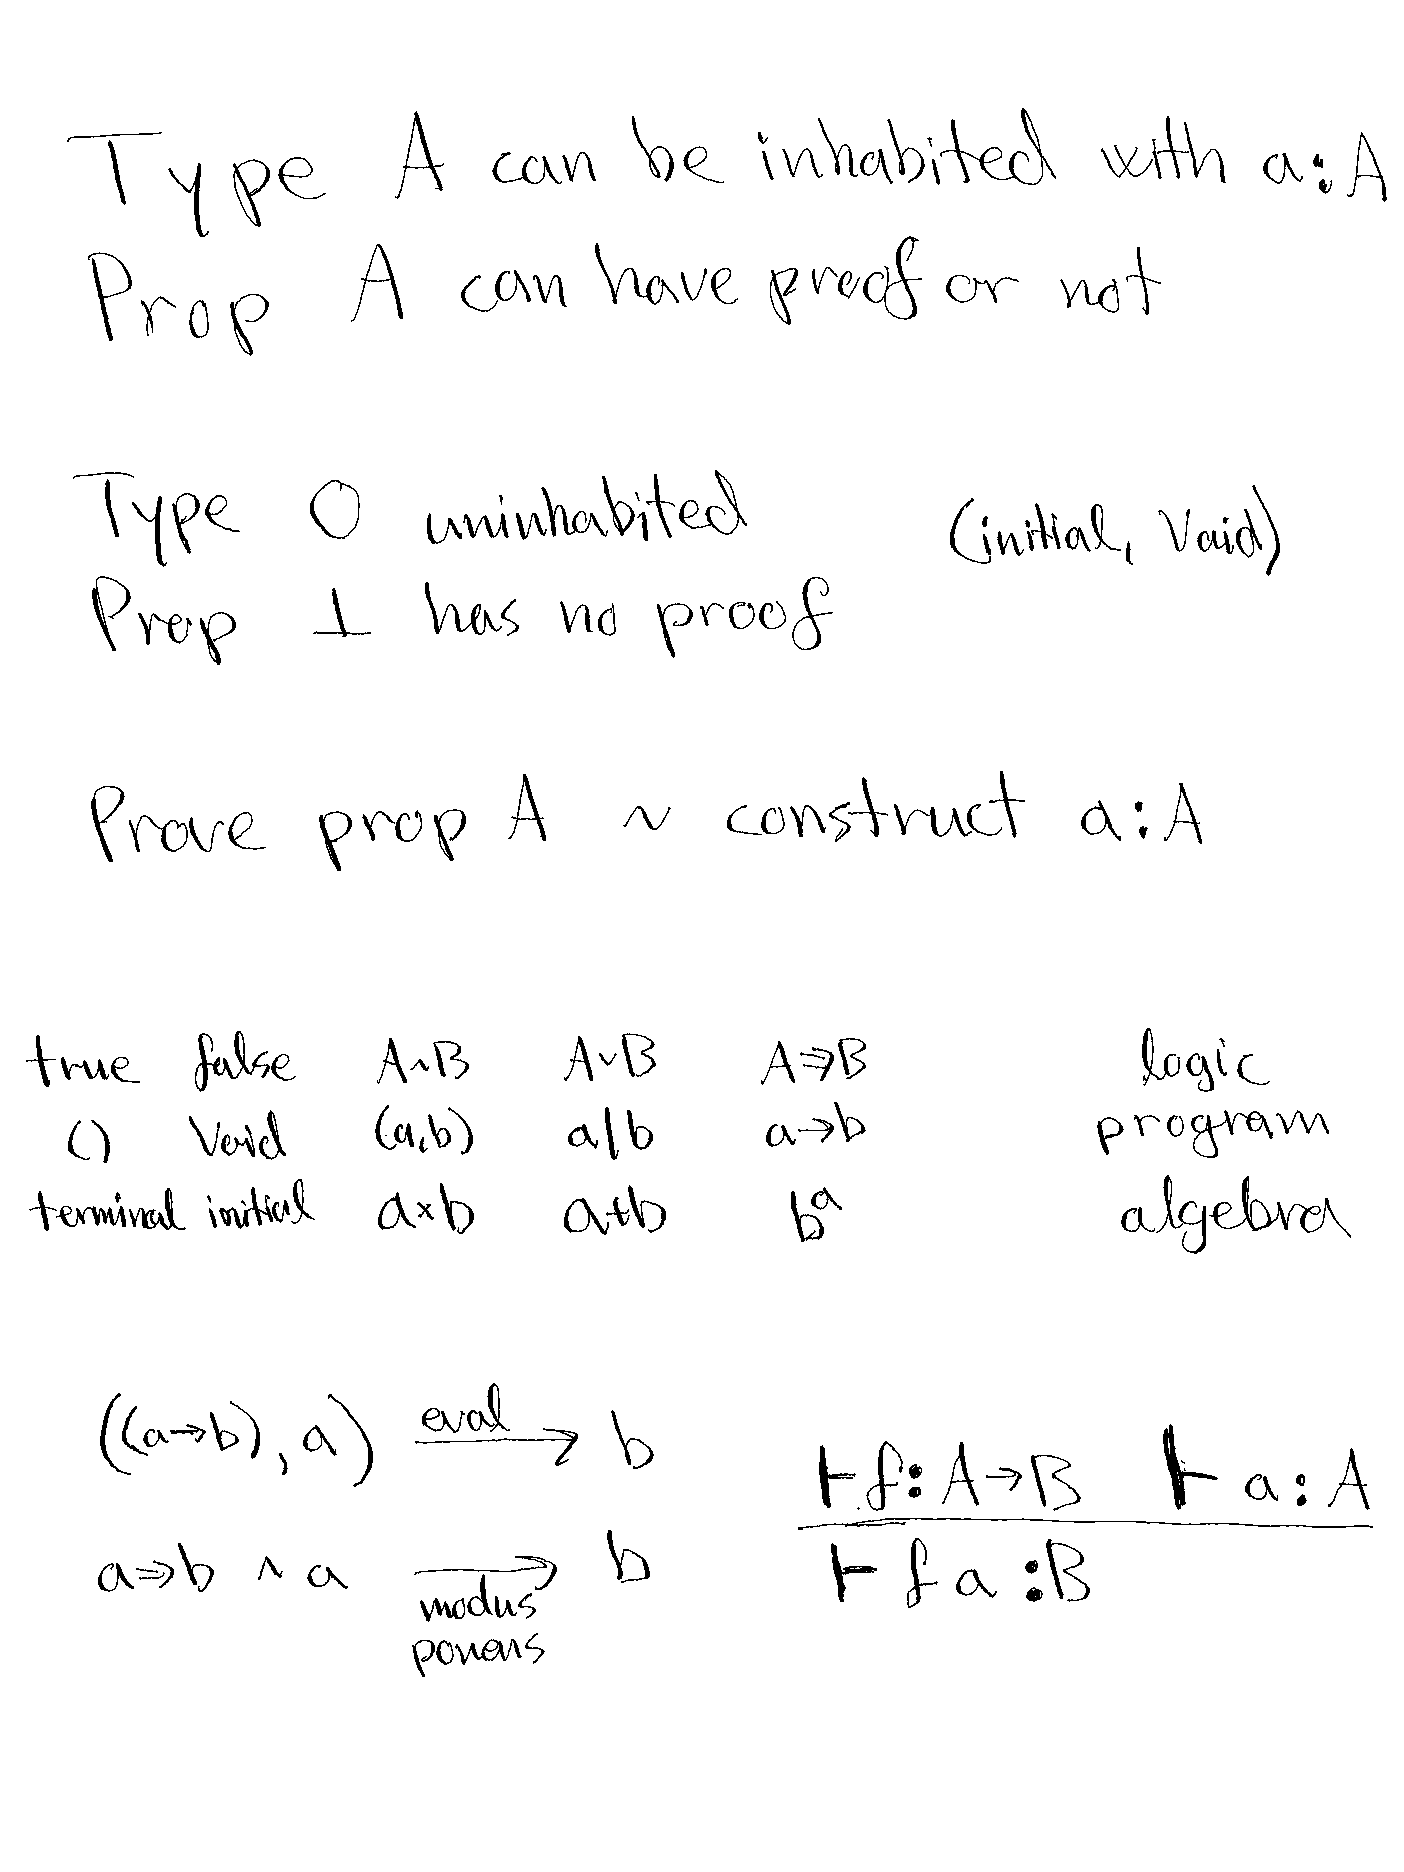 Type A can be inhabited with a:A
Prop A can have proof or not
Type 0 uninhabited (initial, Void)
Prop ⊥ has no proof
Prove prop A ~ construct a:A
true false A∧B A∨B A⇒B logic
() Void (a,b) a|b a→b program
terminal initial a×b a+b bᵃ algebra
((a→b), a) eval → b
⊢ f:A→B ⊢ a:A
a⇒b ∧ a → b
modus
ponens
⊢ f a :B